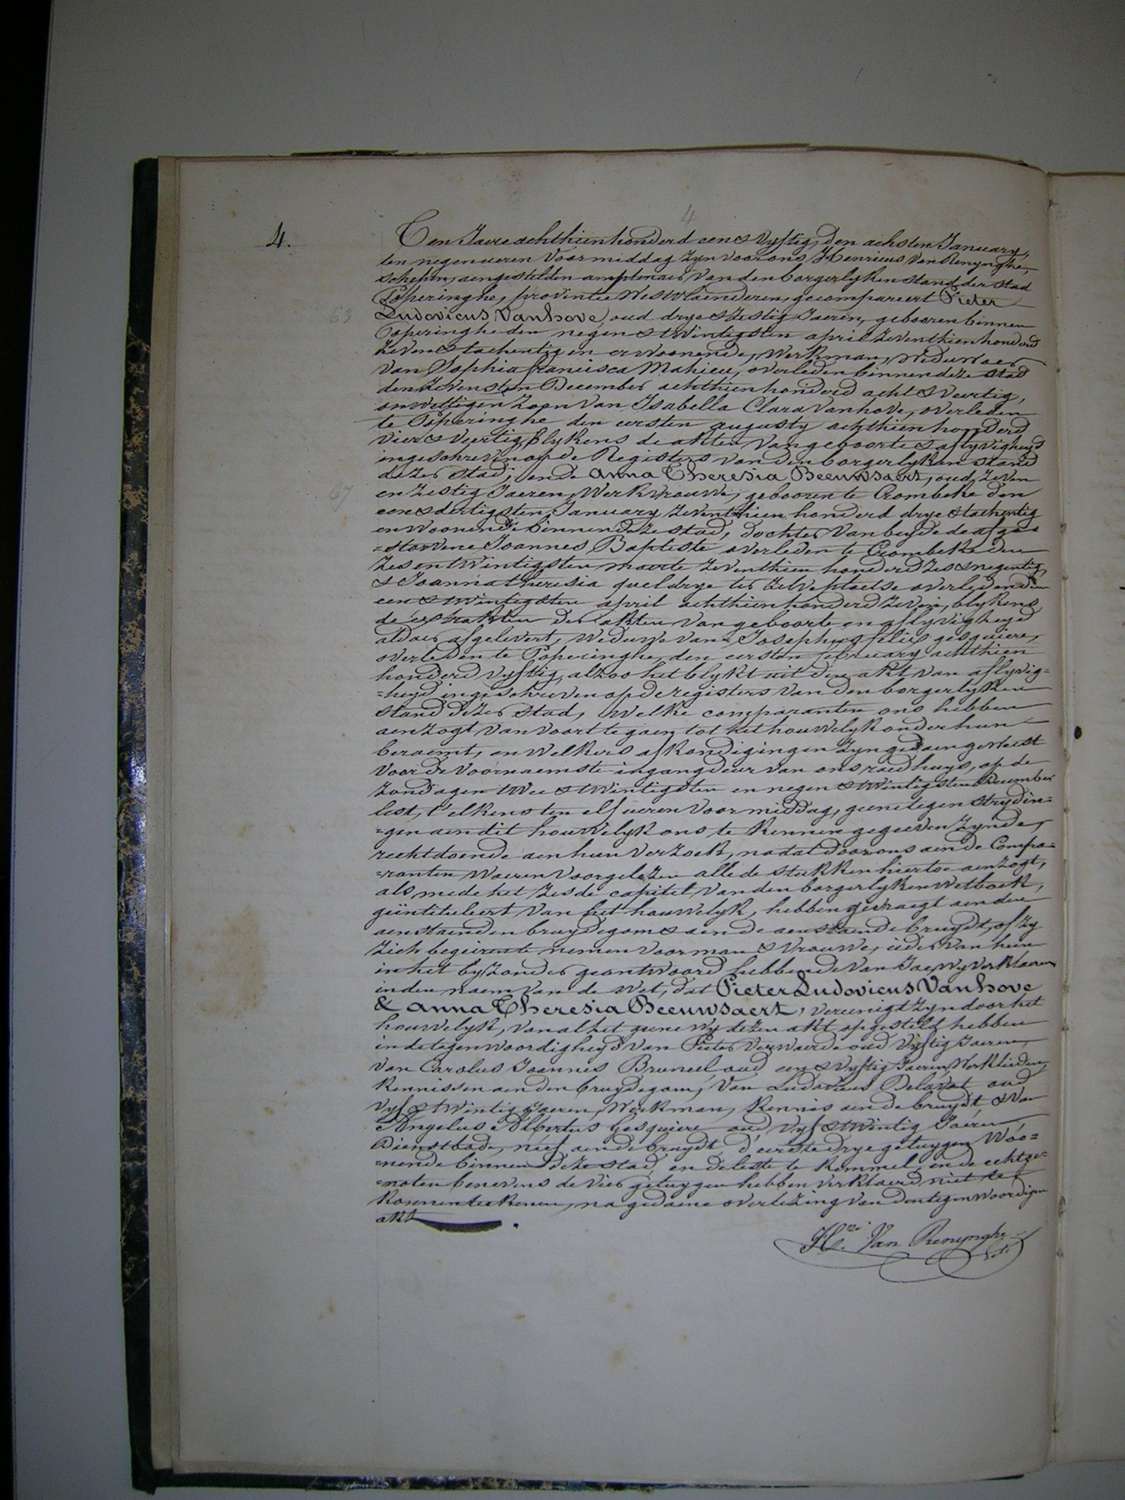 4
4.
Ten Jaere achthien honderd een & vyftig, den achsten January,
ten negen ueren voormiddag zyn voor ons, Henricus Van Renynghe,
schepen, aengestelden amptenaer van den borgerlyken stand der stad
Poperinghe, provintie Westvlaenderen, gecompareert Pieter
63
Ludovicus Vanhove, oud drye & zestig Jaeren, gebooren binnen
Poperinghe den negen & twintigsten april zeventhien honderd
zeven & tachentig en er woonende, Werkman, Weduwaer
van Sophia francisca Mahieu, overleden binnen deze stad
den zevensten December achthien honderd acht & veertig,
onwettigen zoon van Isabella Clara Vanhove, overleden
te Poperinghe den eersten augusty achthien honderd
vier & veertig, blykens de akten van geboorte & aflyvigheyd
ingeschreven op de Registers van den borgerlyken stand
dezer stad; ende Anna Theresia Beeuwsaert, oud zeven
67
en zestig Jaeren, Werkvrouwe, gebooren te Crombeke den
een & dertigsten January zeventhien honderd drye & tachentig
en woonende binnen deze stad, dochter van beyde de afge=
=storvene Joannes Baptiste overleden te Crombeke den
zes en twintigsten maerte zeventhien honderd zes & negentig,
& Joanna theresia queldrye ter zelve plaetse overleden den
een & twintigsten april achthien honderd zeven, blykens
de extrakten der akten van geboorte en aflyvigheyd
aldaer afgelevert, Weduwe van Josephus felix gesquiere,
overleden te Poperinghe, den eersten february achthien
honderd vyftig, alzoo het blykt uit den akt van aflyvig=
=heyd ingeschreven op de registers van den borgerlyken
stand dezer stad, Welke comparanten ons hebben
aenzogt van voort te gaen tot het houwelyk onder hun
beraemt, en welkers afkondigingen zyn gedaen geweest
voor de voornaemste ingangdeur van ons raedhuys, op de
zondagen twee & twintigsten en negen & twintigsten December
lest, t'elkens ten elf ueren voormiddag, geene tegenstrydin=
=gen aen dit houwelyk ons te kennen gegeeven zynde,
recht doende aen hun verzoek, na dat door ons aen de Compa=
=ranten waeren voorgelezen alle de stukken hiertoe aenzogt,
als mede het zesde capitel van den borgerlyken Wetboek,
geïntituleert Van het houwelyk, hebben gevraegt aen den
aenstaenden bruydegom & aen de aenstaende bruydt, of zy
zich begeeren te nemen voor man & Vrouwe, ieder van hun
in het byzonder geantwoord hebbende van Jae, wy verklaeren
in den naem van de Wet, dat Pieter Ludovicus Vanhove
& Anna Theresia Beeuwsaert, vereenigt zyn door het
houwelyk, van al het geene wy dezen akt opgesteld hebben
in de tegenwoordigheyd van Pieter Verwaerde oud vyftig Jaeren,
van Carolus Joannes Bruneel oud een & vyftig Jaeren, Werklieden,
kennissen aen den bruydegom, van Ludovicus Delavat oud
vyf & twintig Jaeren, Werkman, kennis aen de bruydt, & van
Angelus Albertus Gesquiere oud vyf & twintig Jaeren,
Dienstbode, neef aen de bruydt d'eerste drye getuygen woo=
=nende binnen deze stad, en de leste te Kemmel, en de echtge=
=noten benevens de vier getuygen hebben verklaerd niet te
konnen teekenen, na gedaene overlezing van den tegenwoordigen
akt.
Hri. Van Renynghe